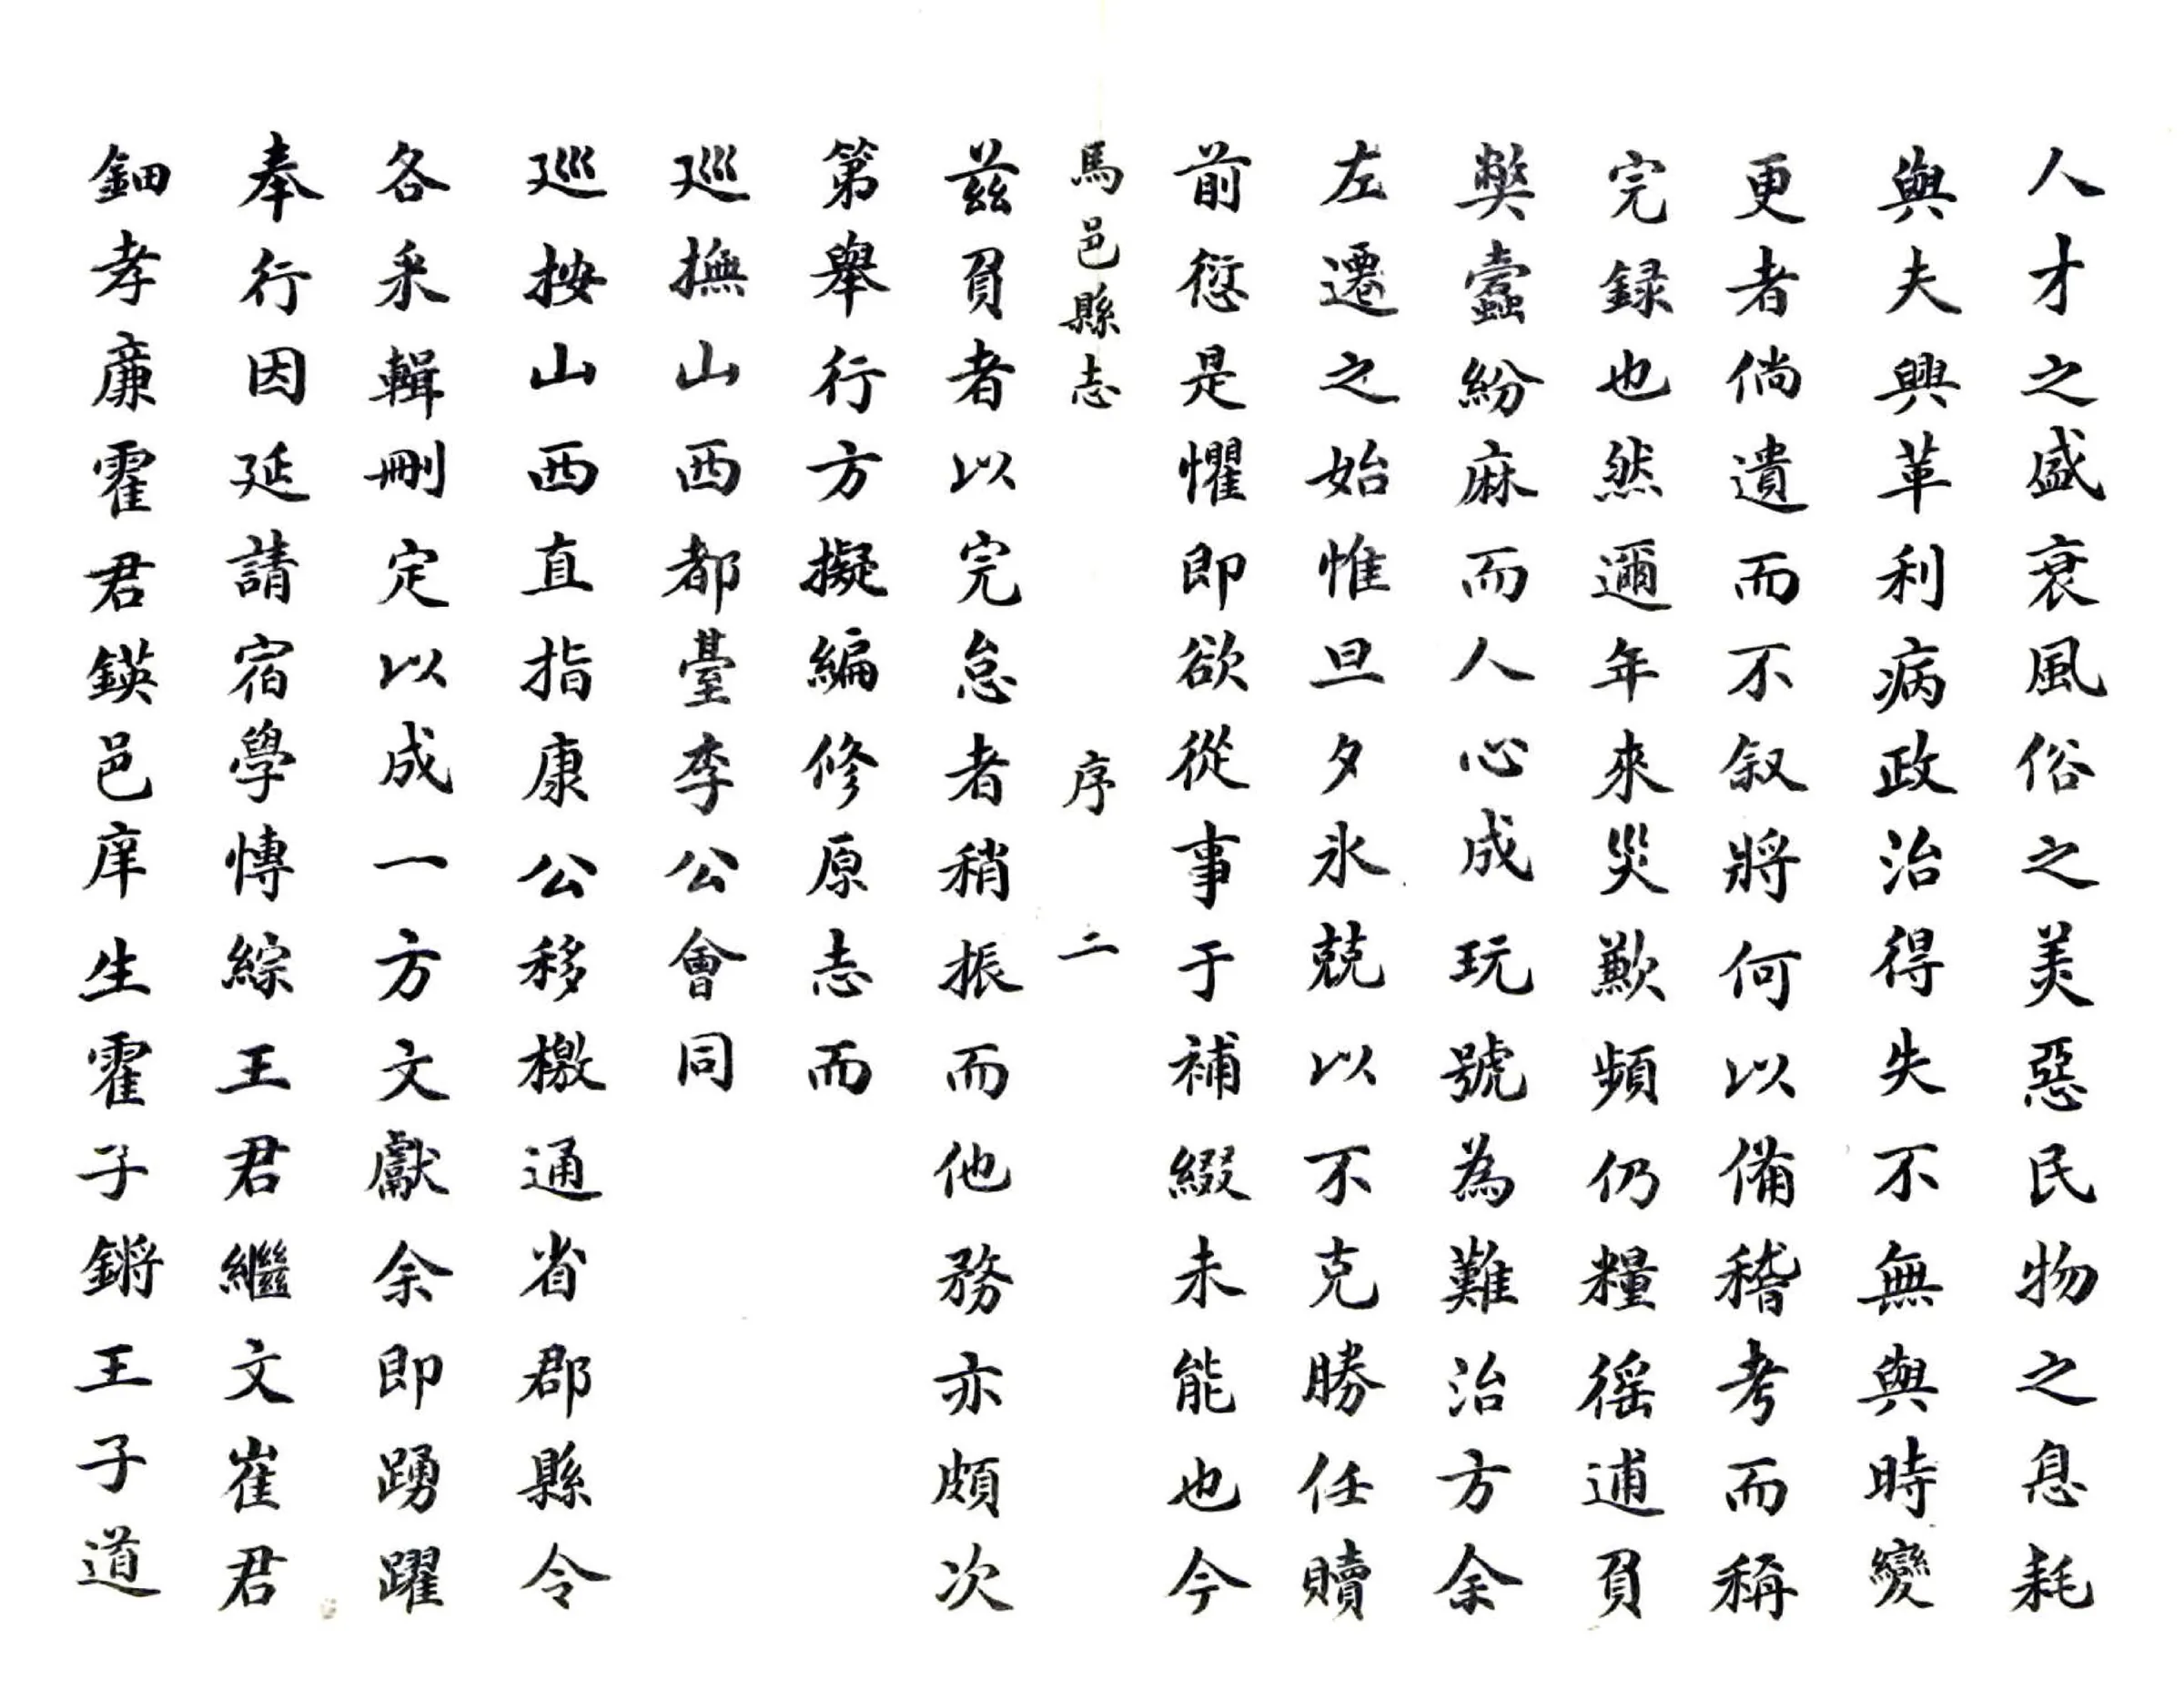 人才之盛衰風俗之美惡民物之息耗
與夫興革利病政治得失不無與時變
更者倘遺而不叙將何以備稽考而稱
完録也然邇年來災歉頻仍糧徭逋負
獘蠧紛麻而人心成玩號為難治方余
左遷之始惟旦夕氷兢以不克勝任贖
前愆是懼即欲從事于補綴未能也今
馬邑縣志 序 二
兹負者以完怠者稍振而他務亦頗次
第舉行方擬編修原志而
廵撫山西都臺李公會同
廵按山西直指康公移檄通省郡縣令
各采輯刪定以成一方文獻余即踴躍
奉行因延請宿學愽綜王君繼文崔君
鈿孝廉霍君鍈邑庠生霍子鏘王子道